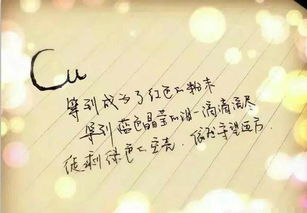 Cu
等到成为了红色的粉末
等到蓝色晶莹的泪一滴滴流尽
徒剩绿色的空壳，依然守望远方